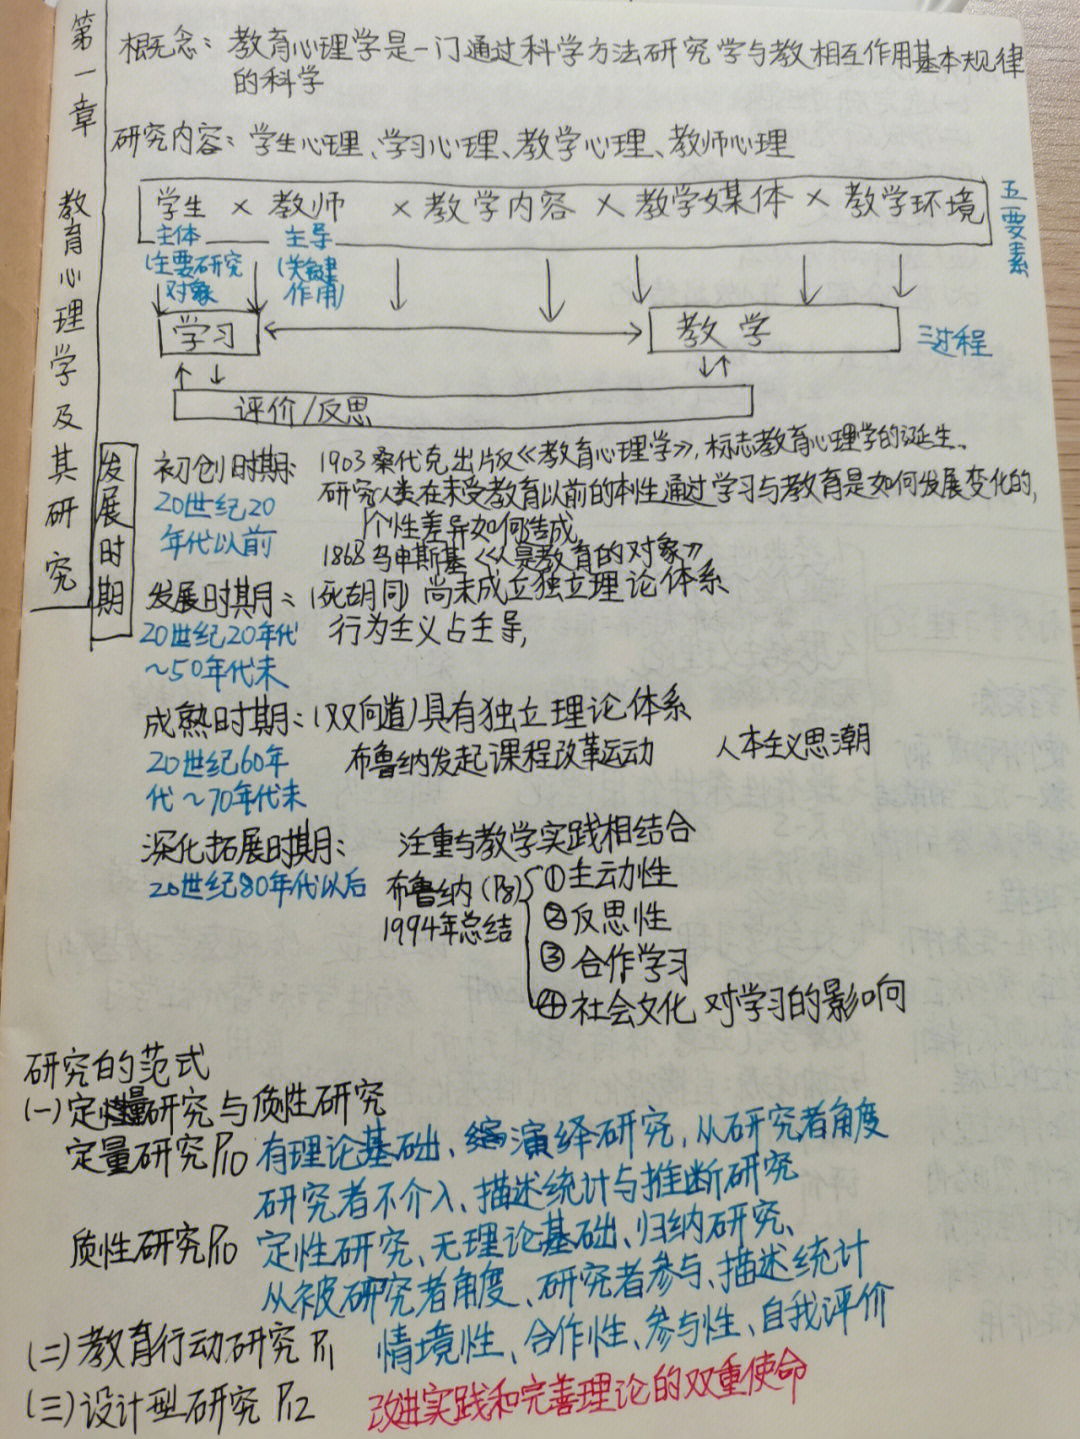 第一章 教育心理学及其研究
概念：教育心理学是一门通过科学方法研究学与教相互作用基本规律
的科学
研究内容：学生心理、学习心理、教学心理、教师心理
学生 × 教师 × 教学内容 × 教学媒体 × 教学环境
五要素
主体 主导
(主要研究 (关键
对象) 作用)
学习 教学 三过程
评价/反思
发展时期
初创时期： 1903桑代克出版《教育心理学》，标志教育心理学的诞生、
20世纪20 研究人类在未受教育以前的本性通过学习与教育是如何发展变化的，
年代以前 个性差异如何造成
1868乌申斯基《人是教育的对象》
发展时期：(死胡同) 尚未成立独立理论体系
20世纪20年代 行为主义占主导，
～50年代末
成熟时期：(双向道)具有独立理论体系
20世纪60年 布鲁纳发起课程改革运动 人本主义思潮
代～70年代末
深化拓展时期： 注重与教学实践相结合
20世纪80年代以后 布鲁纳(P8) ①主动性
1994年总结 ②反思性
③合作学习
④社会文化 对学习的影响
研究的范式
(一)定量研究与质性研究
定量研究P10 有理论基础、演绎研究，从研究者角度
研究者不介入、描述统计与推断研究
质性研究P10 定性研究、无理论基础、归纳研究、
从被研究者角度、研究者参与、描述统计
(二)教育行动研究P11 情境性、合作性、参与性、自我评价
(三)设计型研究P12 改进实践和完善理论的双重使命